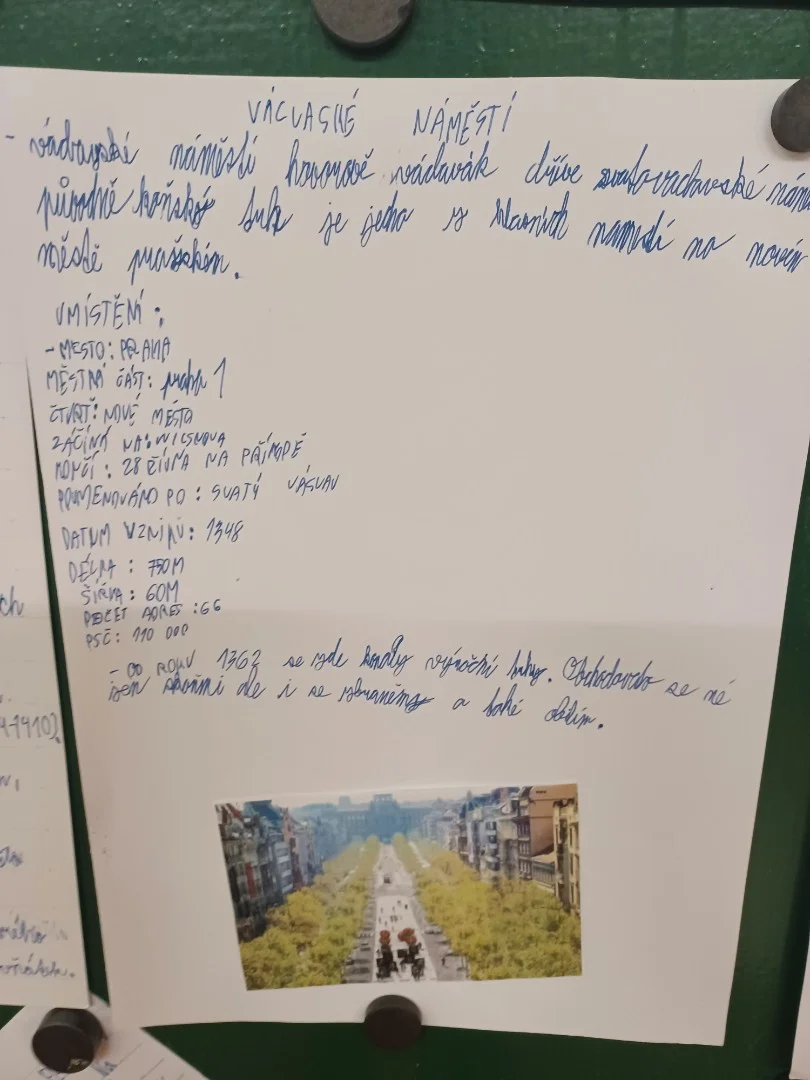 VÁCLASKÉ NÁMĚSTÍ
- václavské náměstí hovorově václavák dříve svatovaclavské
původně koňský trh je jedno z hlavních namestí na novém
městě pražském.
UMÍSTĚNÍ:
- MESTO: PRAHA
MĚSTNÁ ČÁST: praha 1
ČTVRŤ: NOVÉ MĚSTO
ZÁČÍNÁ NA: WILSNOVA
KONČÍ: 28 ŘÍJNA NA PŘÍKOPĚ
POJMENOVÁNO PO: SVATÝ VÁSLAV
DATUM VZNIKU: 1348
DÉLKA: 750M
ŠÍŘKA: 60M
POČET ADRES: 66
PSČ: 110 000
- OD ROKU 1362 se zde konaly výroční trhy. Obchodovalo se né
jen koňmi ale i se zbraněmi a také obilím.
ch
1410).